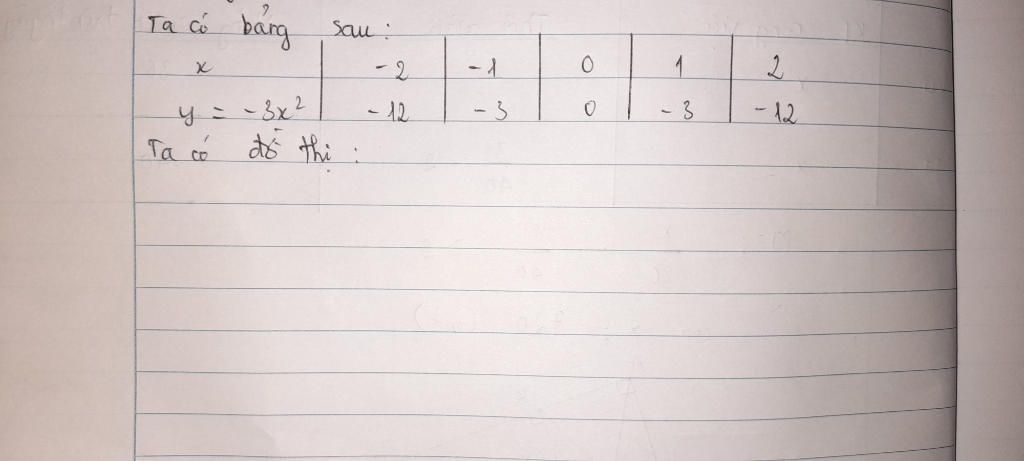 Ta có bảng sau :
x -2 -1 0 1 2
y = -3x² -12 -3 0 -3 -12
Ta có đồ thị :